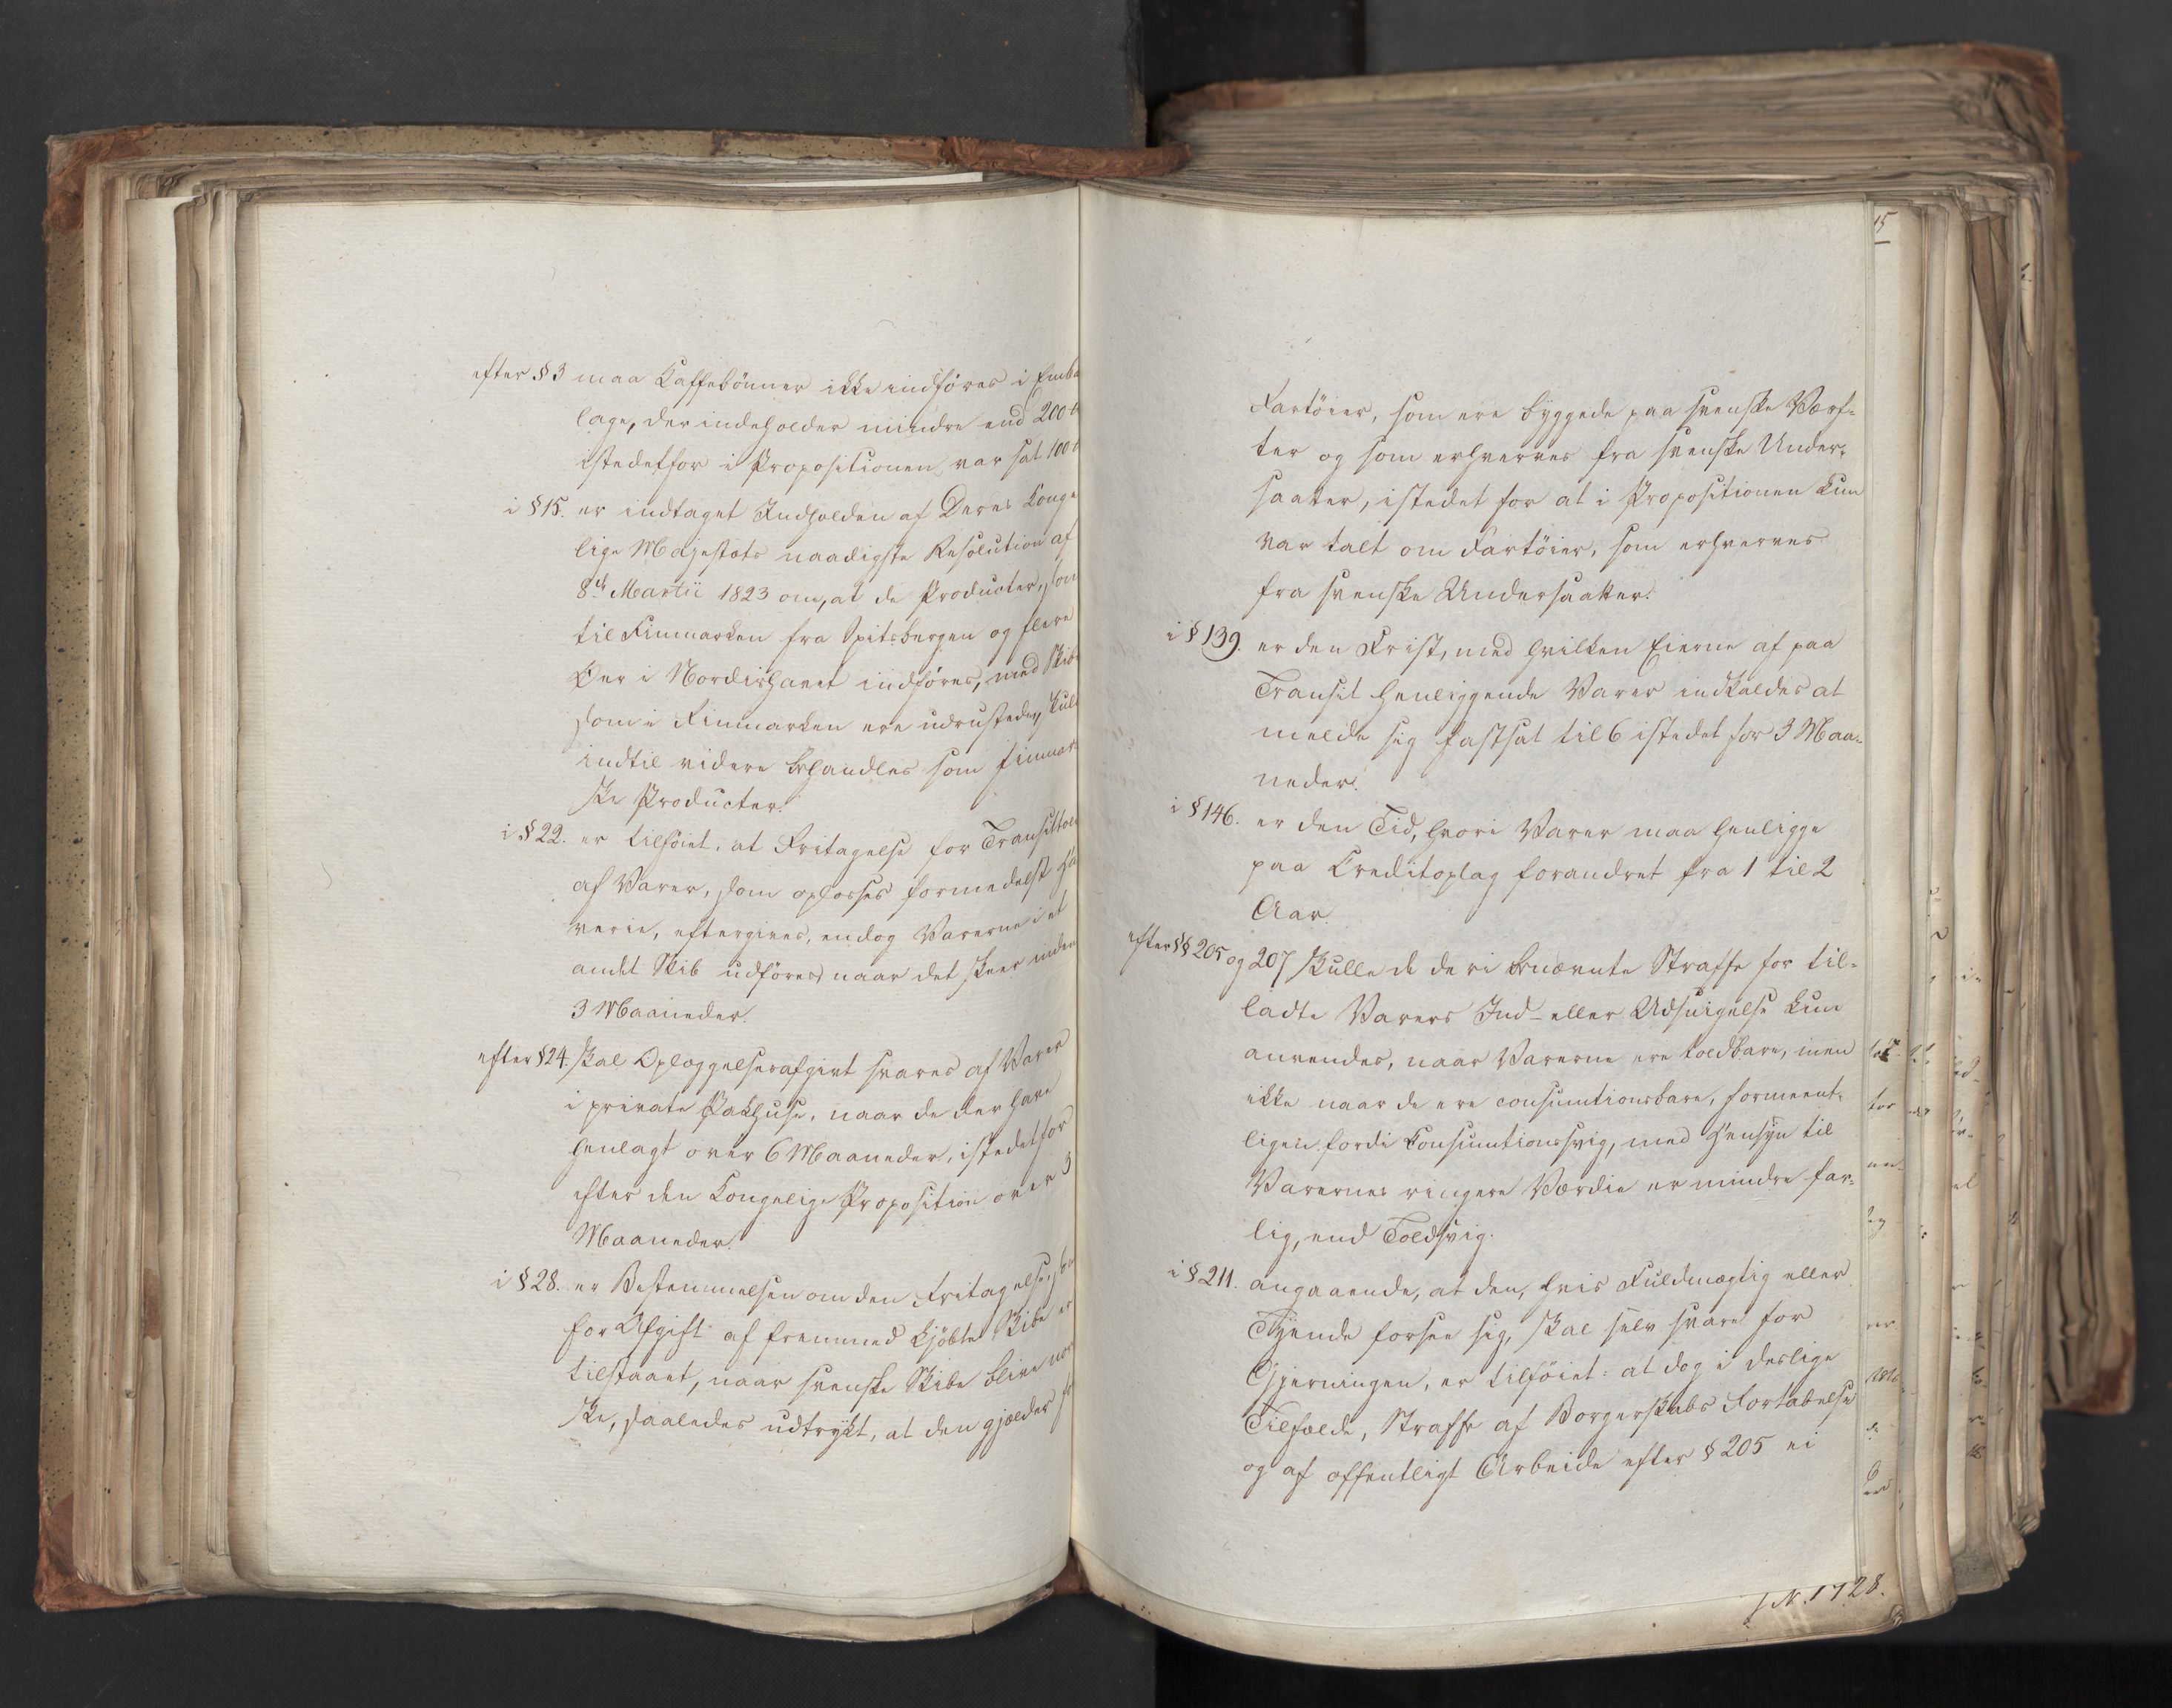 efter § 3 maa Kaffebønner ikke indføres i Emba
lage, der indeholder mindre end 200 ℔
istedetfor i Propositionen var sat 100 ℔
i § 15. er indtaget Indholden af Deres Konge
lige Majestæts naadigste Resolution af
8de Martii 1823 om, at de Producter, som
til Finmarken fra Spitsbergen og flere
Øer i Nordishavet indføres, med Skibe
som i Finmarken ere udrustede, skul
indtil videre behandles som finmar
ske Producter.
i § 22. er tilføiet, at Fritagelse for Transittol
af Varer, som oplosses formedelst Ha
verie, eftergives, endog Varerne i et
andet Skib udføres, naar det skeer inden
3 Maaneder.
efter § 24. skal Oplæggelsesafgivt svares af Varer
i private Pakhuse, naar de der have
henlagt over 6 Maaneder, istedetfor
efter den Kongelige Proposition over 3
Maaneder.
i § 28. er Bestemmelsen om den Fritagelse, so
for Afgift af fremmed kjøbte Skibe er
tilstaaet, naar svenske Skibe blive nor
ske, saaledes udtrykt, at den gjælder
15
Fartøier, som ere byggede paa svenske Værf-
ter og som erhverves fra svenske Under-
saatter, istedet for at i Propositionen kun
var talt om Fartøier, som erhverves
fra svenske Undersaatter.
i § 139. er den Frist, med hvilken Eierne af paa
Transit henliggende Varer indkaldes at
melde sig fastsat til 6 istedet for 3 Maa-
neder.
i § 146. er den Tid, hvori Varer maa henligge
paa Creditoplag forandret fra 1 til 2
Aar.
efter §§ 205 og 207 skulle de deri benævnte Straffe for til-
ladte Varers Ind- eller Udsvigelse kun
anvendes, naar Varerne ere toldbare, men
ikke naar de ere consumtionsbare, formeent-
ligen fordi Consumtionssvig, med Hensyn til
Varernes ringere Værdie er mindre far-
lig, end Toldsvig.
i § 211. angaaende, at den, hvis Fuldmægtig eller
Tyende forsee sig, skal selv svare for
Gjerningen, er tilføiet: at dog i deslige
Tilfælde, Straffe af Borgerskabs Fortabelse
og af offentligt Arbeide efter § 205 ei
J. N. 1728.